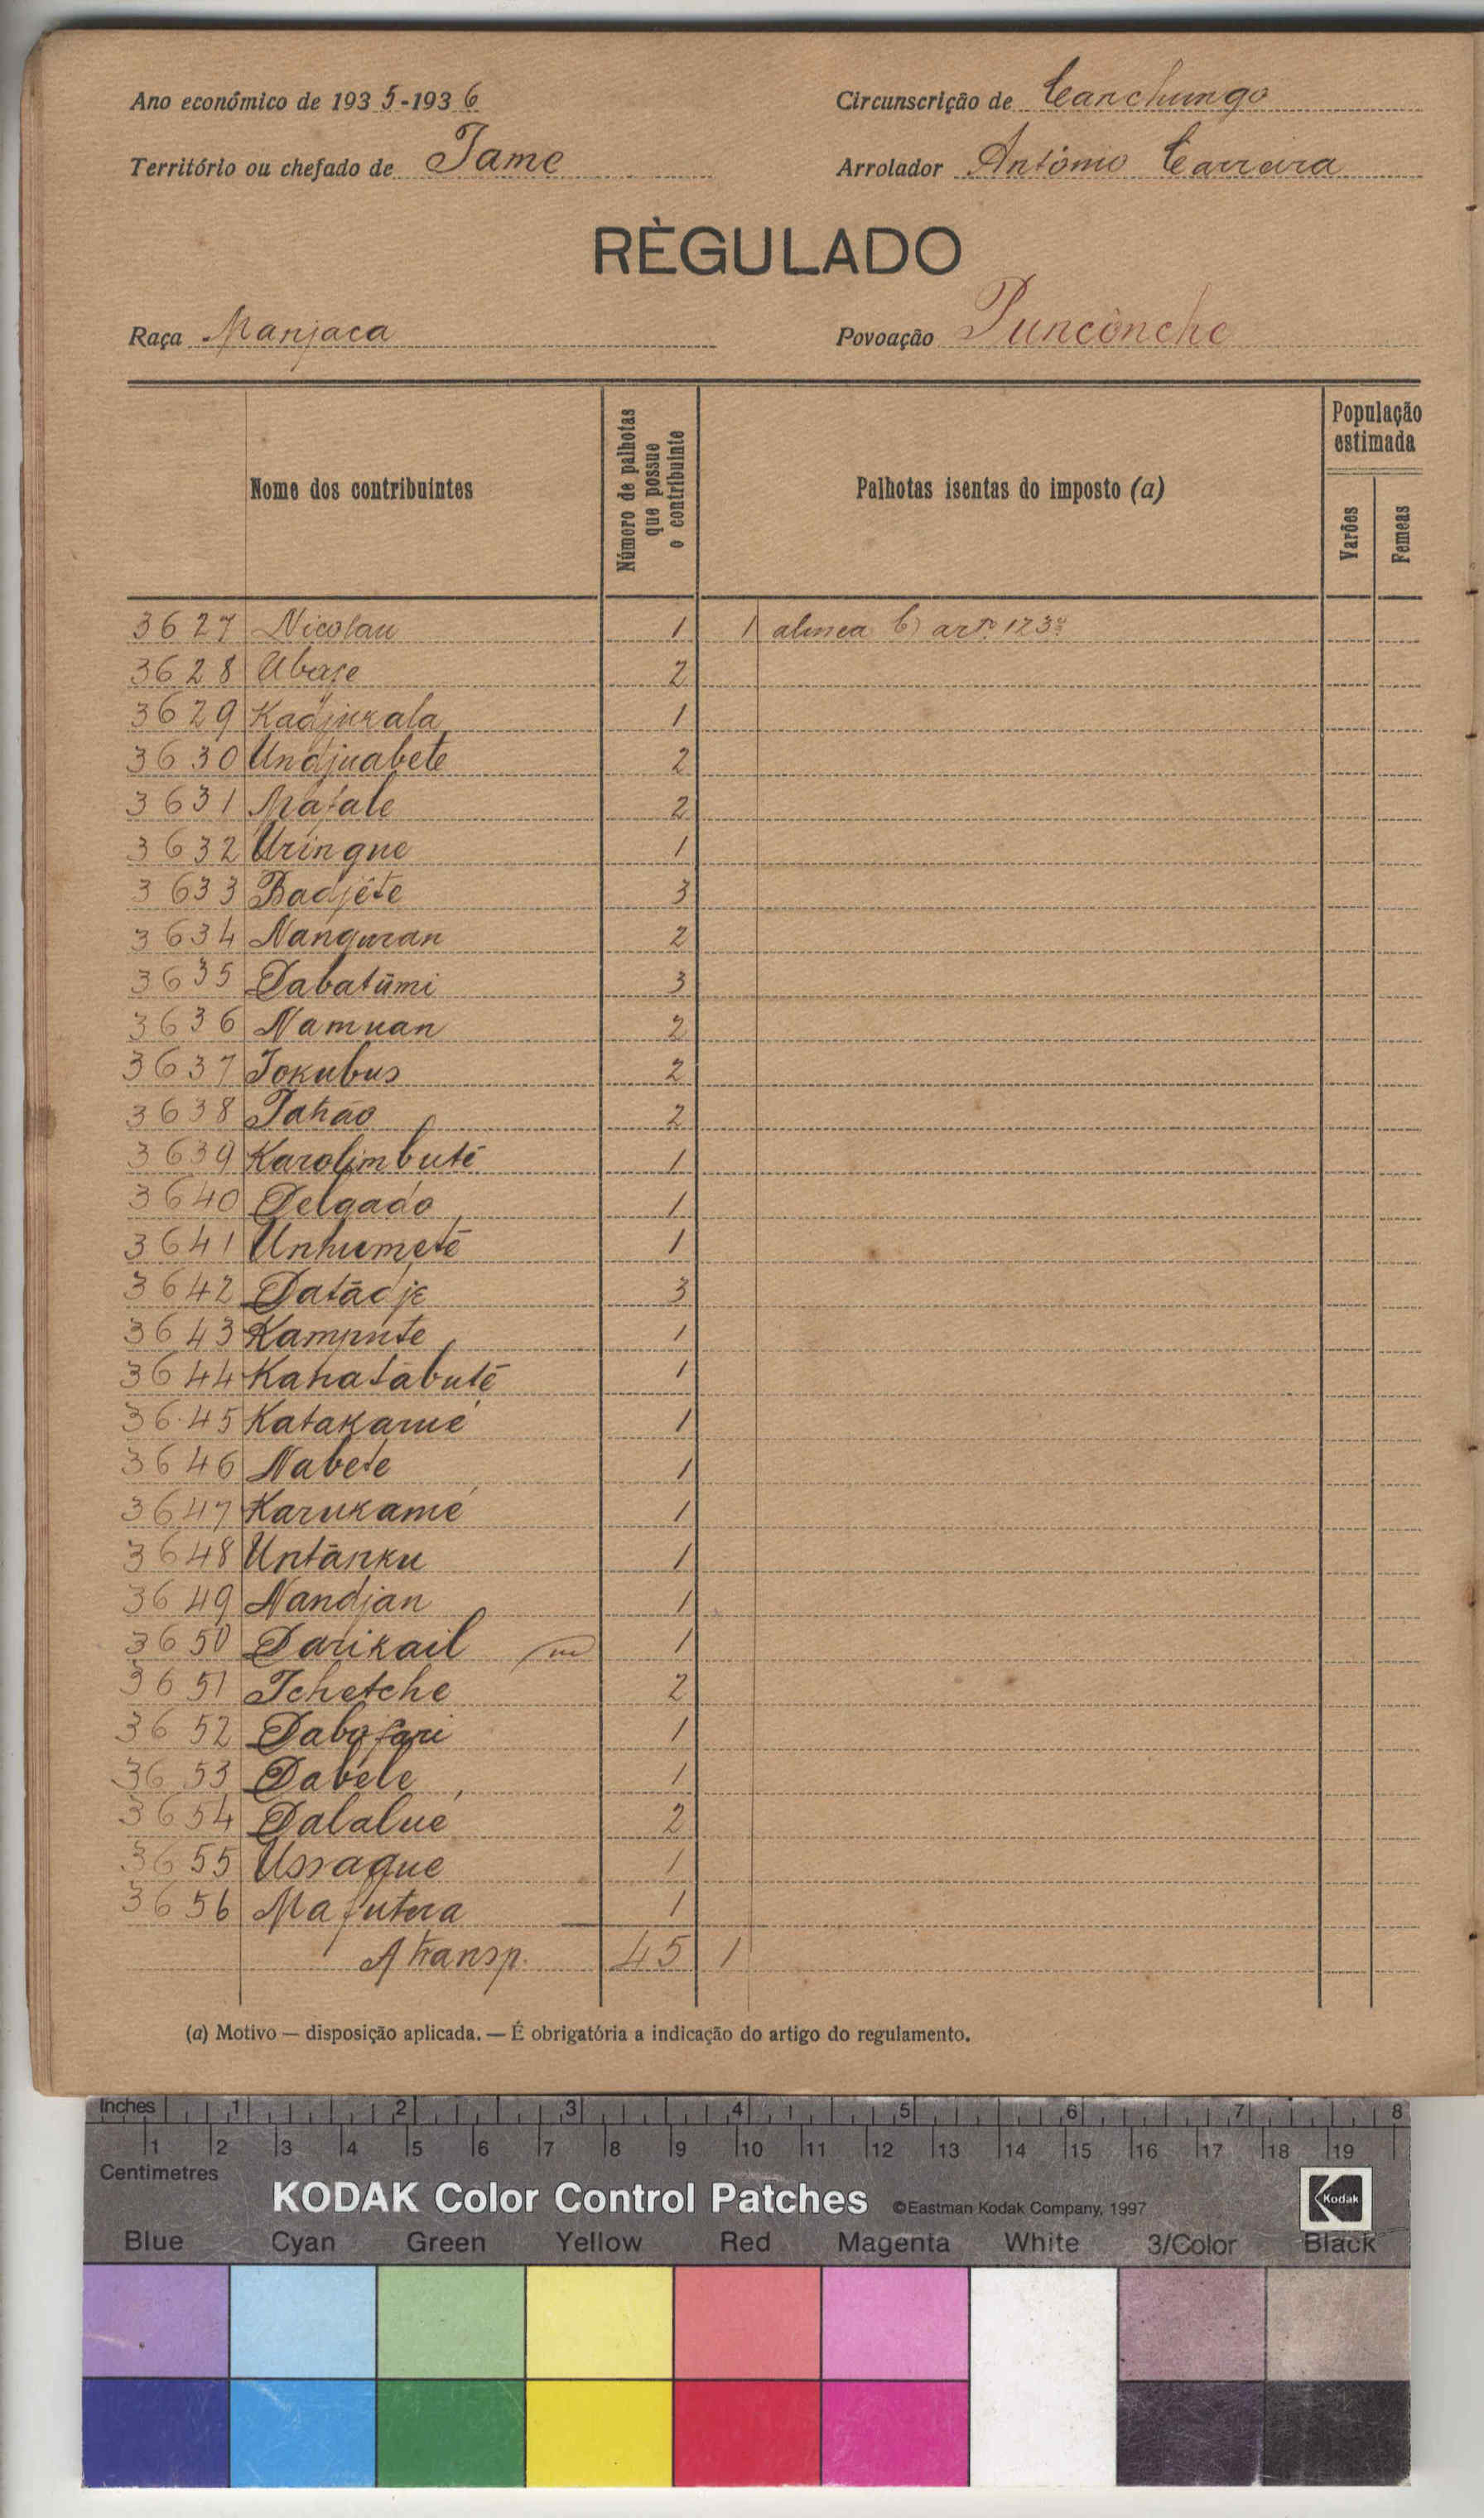 Ano económico de 1935-1936 Circunscrição de Canchungo
Território ou chefado de Tame Arrolador António Carreira
RÈGULADO
Raça Manjaca Povoação Punconche
Nome dos contribuintes
Número de palhotas
que possue
o contribuinte
Palhotas isentas do imposto (a)
População
estimada
Varões
Femeas
3627 Nicolau 1 1 alinea b) artº 123º
3628 Ubase 2
3629 Kadjukala 1
3630 Undjuabete 2
3631 Mafale 2
3632 Uringue 1
3633 Badjête 3
3634 Nanguran 2
3635 Dabatūmi 3
3636 Namuan 2
3637 Jokubus 2
3638 2
3639 Karolimbutē 1
3640 Delgado 1
3641 Unhumetē 1
3642 Datādje 3
3643 Kampute 1
3644 Kahatābutē 1
3645 Katakamé 1
3646 Nabete 1
3647 Karukamé 1
3648 Untānku 1
3649 Nandjan 1
3650 Darikail 1
3651 Tchetche 2
3652 Dabofari 1
3653 Dabéle 1
3654 Dalalué 2
3655 Ussaque 1
3656 Mafutera 1
A transp. 45 1
(a) Motivo — disposição aplicada. — É obrigatória a indicação do artigo do regulamento.
Inches 1 2 3 4 5 6 7 8
1 2 3 4 5 6 7 8 9 10 11 12 13 14 15 16 17 18 19
Centimetres
KODAK Color Control Patches ©Eastman Kodak Company, 1997 Kodak
Blue Cyan Green Yellow Red Magenta White 3/Color Black